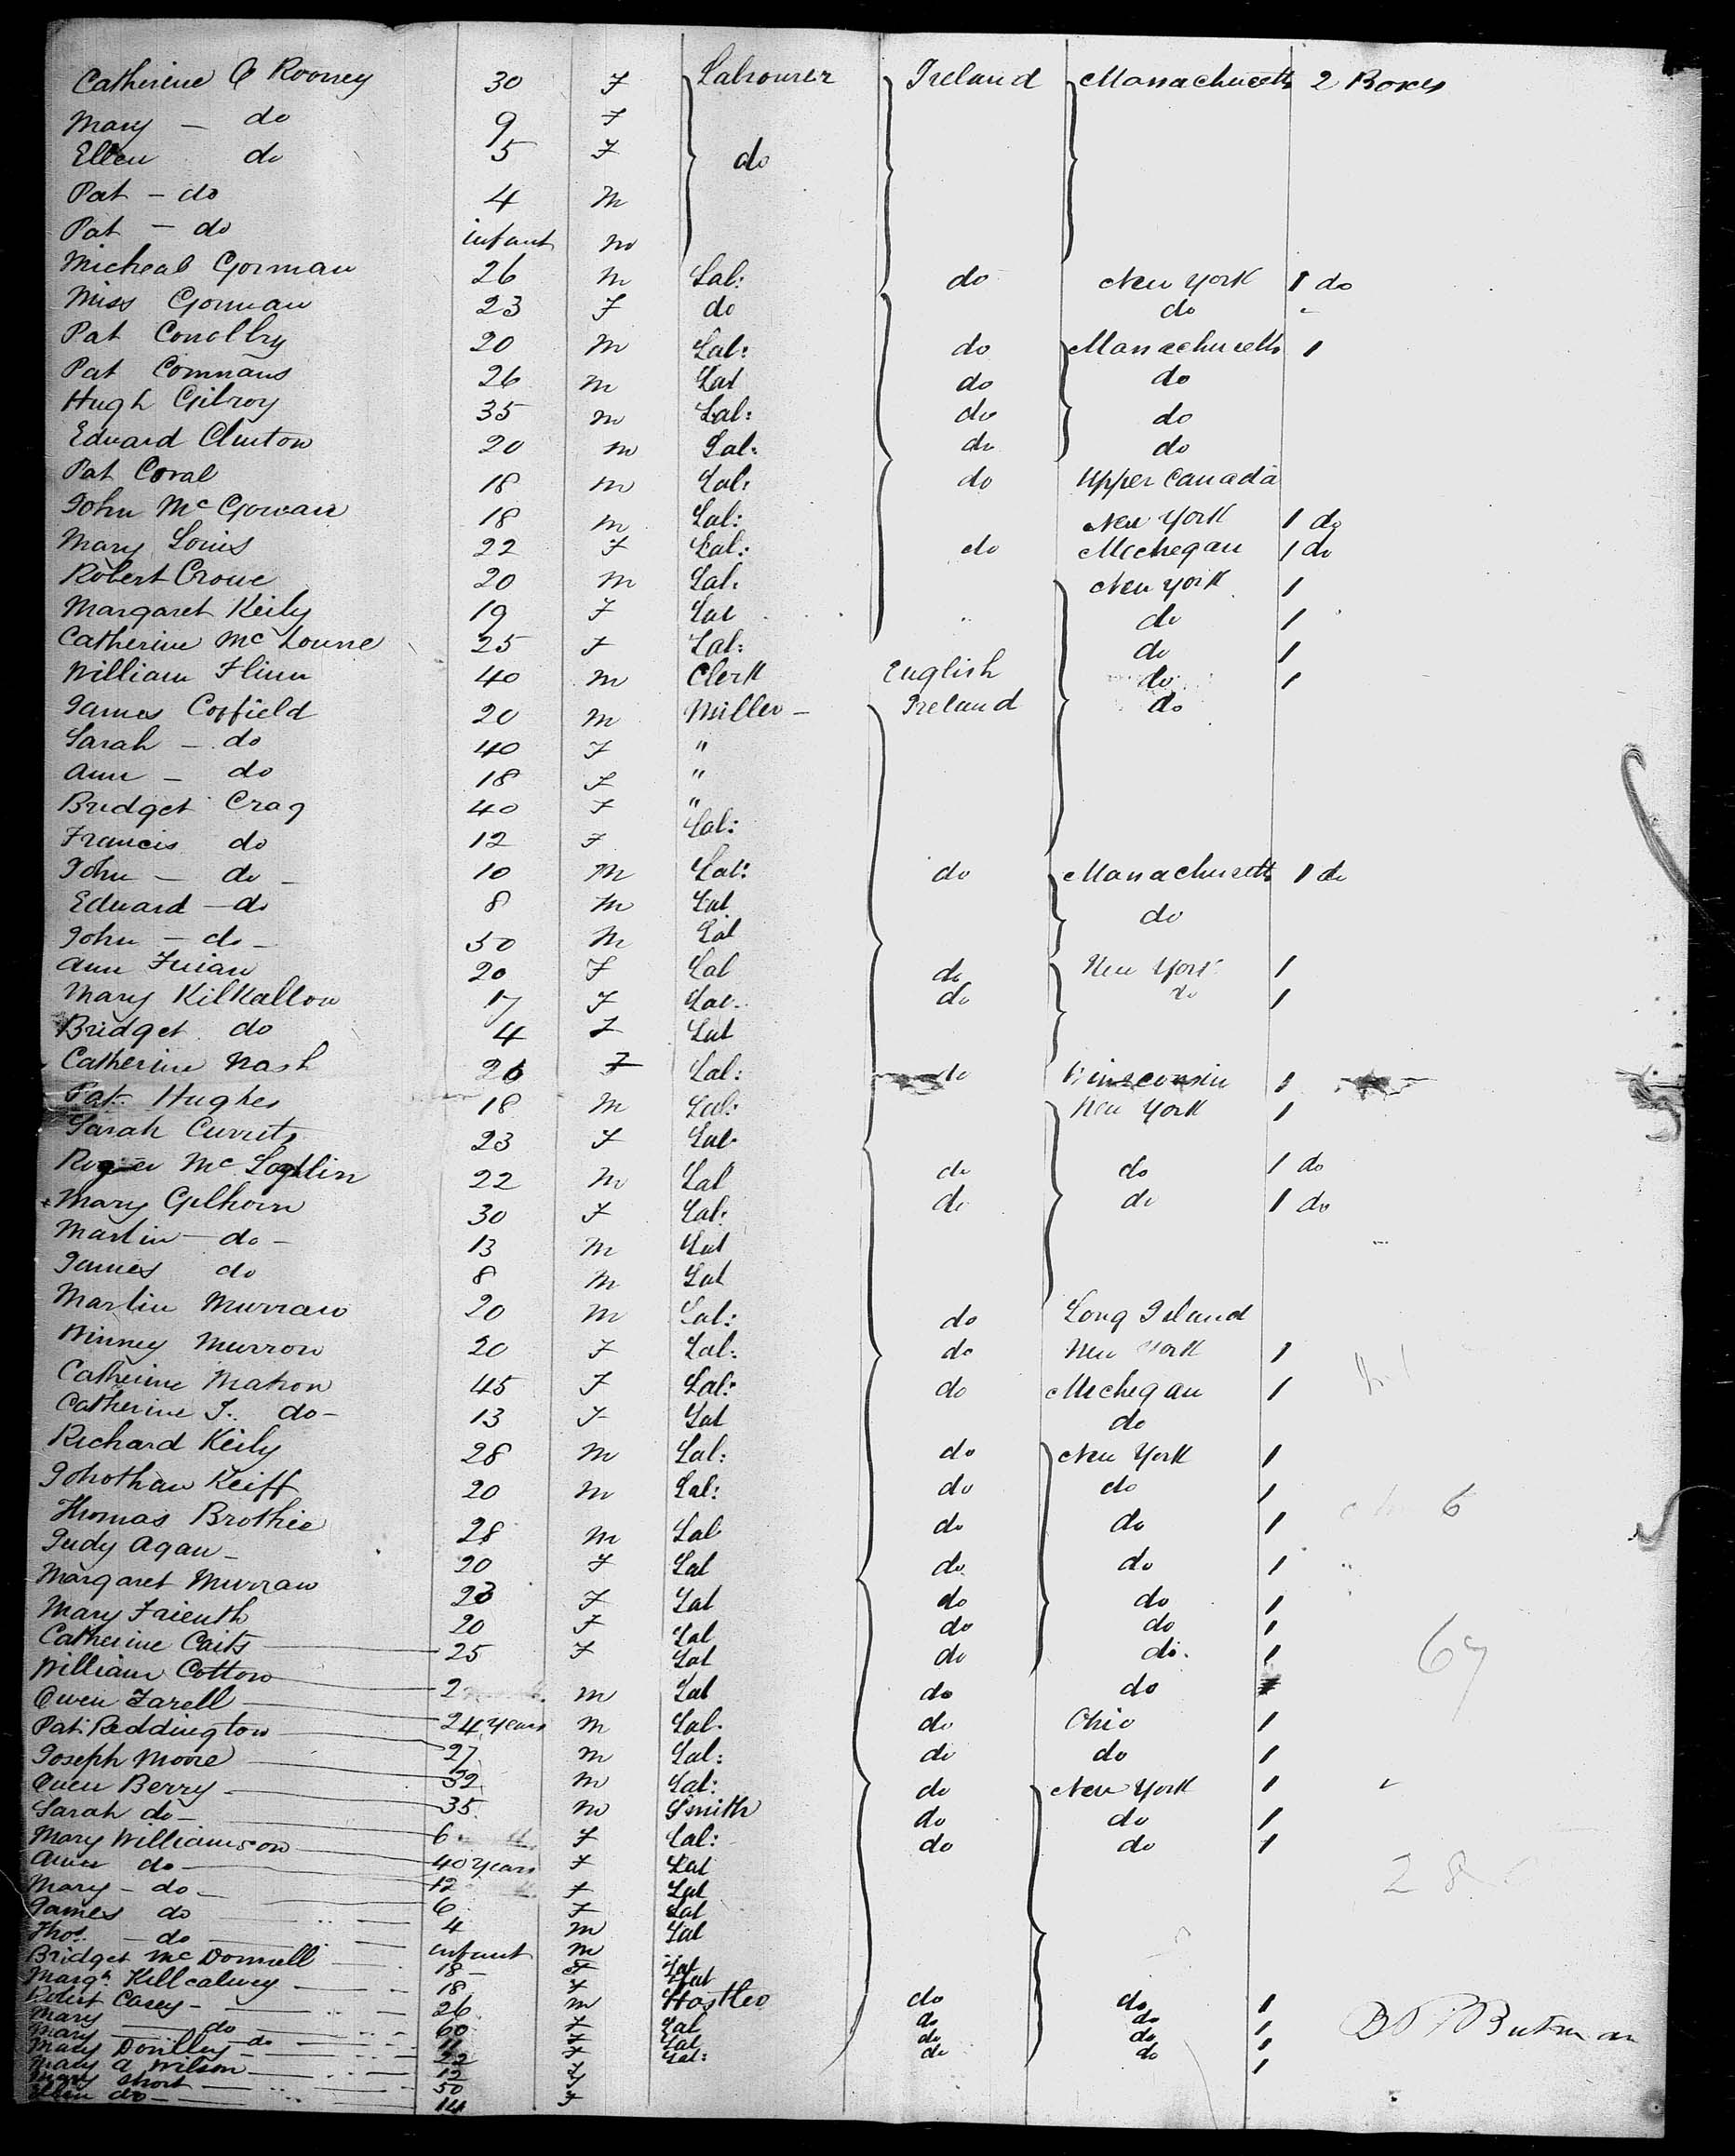 Catherine O Rooney 30 F Labourer Ireland Massachusetts 2 Boxes
Mary - do 9 F
Ellen do 5 F do
Pat - do 4 M
Pat - do infant M
Micheal Gorman 26 M Lab: do New York 1 do
Miss Gorman 23 F do do
Pat Conollry 20 M Lab: do Massachusetts 1
Pat Commans 26 M Lab do do
Hugh Gilroy 35 M Lab: do do
Edward Clinton 20 M Lab: do do
Pat Coral 18 M Lab: do Upper Canada
John McGowan 18 M Lab: New York 1 do
Mary Louis 22 F Lab: do Michegan 1 do
Robert Crowe 20 M Lab. New York 1
Margaret Keily 19 F Lab do 1
Catherine Mc Loune 25 F Lab: do 1
William Flinn 40 M Clerk English do 1
James Corfield 20 M Miller - Ireland do
Sarah - do 40 F "
Ann - do 18 F "
Bridget Crag 40 F "
Francis do 12 F Lab:
John - do - 10 M Lab: do Massachusetts 1 do
Edward - do 8 M Lab do
John - do - 50 M Lab
Ann 20 F Lab do New York 1
Mary Kilkallon 17 F Lab. do do 1
Bridget do 4 F Lab
Catherine Nash 26 F Lab: do Winsconsin 1
Pat. Hughes 18 M Lab: New York 1
Sarah 23 F Lab
Roger Mc Loghlin 22 M Lab do do 1 do
Mary Gilhorn 30 F Lab: do do 1 do
Martin - do - 13 M Lab
James do 8 M Lab
Martin Murraw 20 M Lab: do Long Island
Winney Murrow 20 F Lab: do New York 1
Catherine Mahon 45 F Lab: do Michegan 1
Catherine J. do - 13 F Lab do
Richard Keily 28 M Lab: do New York 1
Johothan Keiff 20 M Lab: do do 1 6
Thomas Brothie 28 M Lab do do 1
Judy Agan - 20 F Lab do do 1
Margaret Murraw 23 F Lab do do 1
Mary 20 F Lab do do 1
Catherine Caits 25 F Lab do do. 1 67
William Cotton 2 M Lab do do
Owen Farell 24 years M Lab. do Ohio 1
Pat. Reddington 27 M Lab: do do 1
Joseph Moore 32 M Lab: do New York 1
Owen Berry - 35 M Smith do do 1
Sarah do - 6 F Lab: do do 1
Mary Williamson 40 years F Lab 28
Ann do - 12 F Lab
Mary - do - 6 F Lab
James do 4 M Lab
Thos. - do infant M
Bridget Mc Donnell 18 - F Lab
Margt. Killcalwey 18 F Lab
Robert Casey - 26 M Hostler do do 1
Mary do 60 F Lab do do 1
Mary do 11 F Lab do do 1
Mary Donlley - 22 F Lab: do do 1
Mary A Wilson 12 F
Mary Short 50 F
Ellen do - 14 F